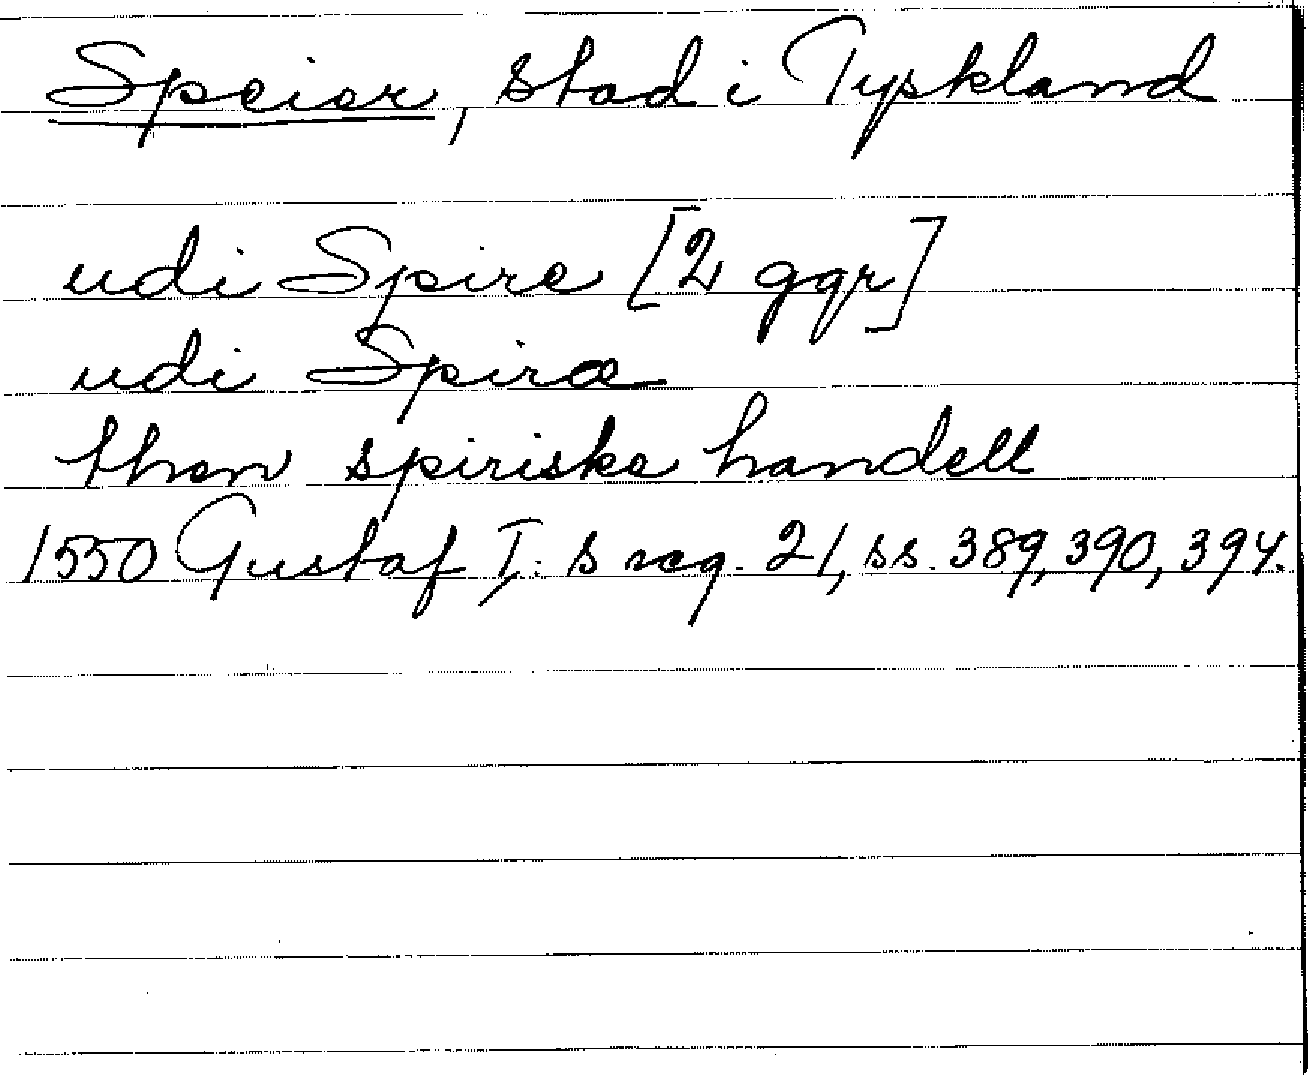 Speier, stad i Tyskland
udi Spire [2 ggr]
udi Spiræ
then spiriske handell
1550 Gustaf I:s reg. 21, ss. 389, 390, 394.